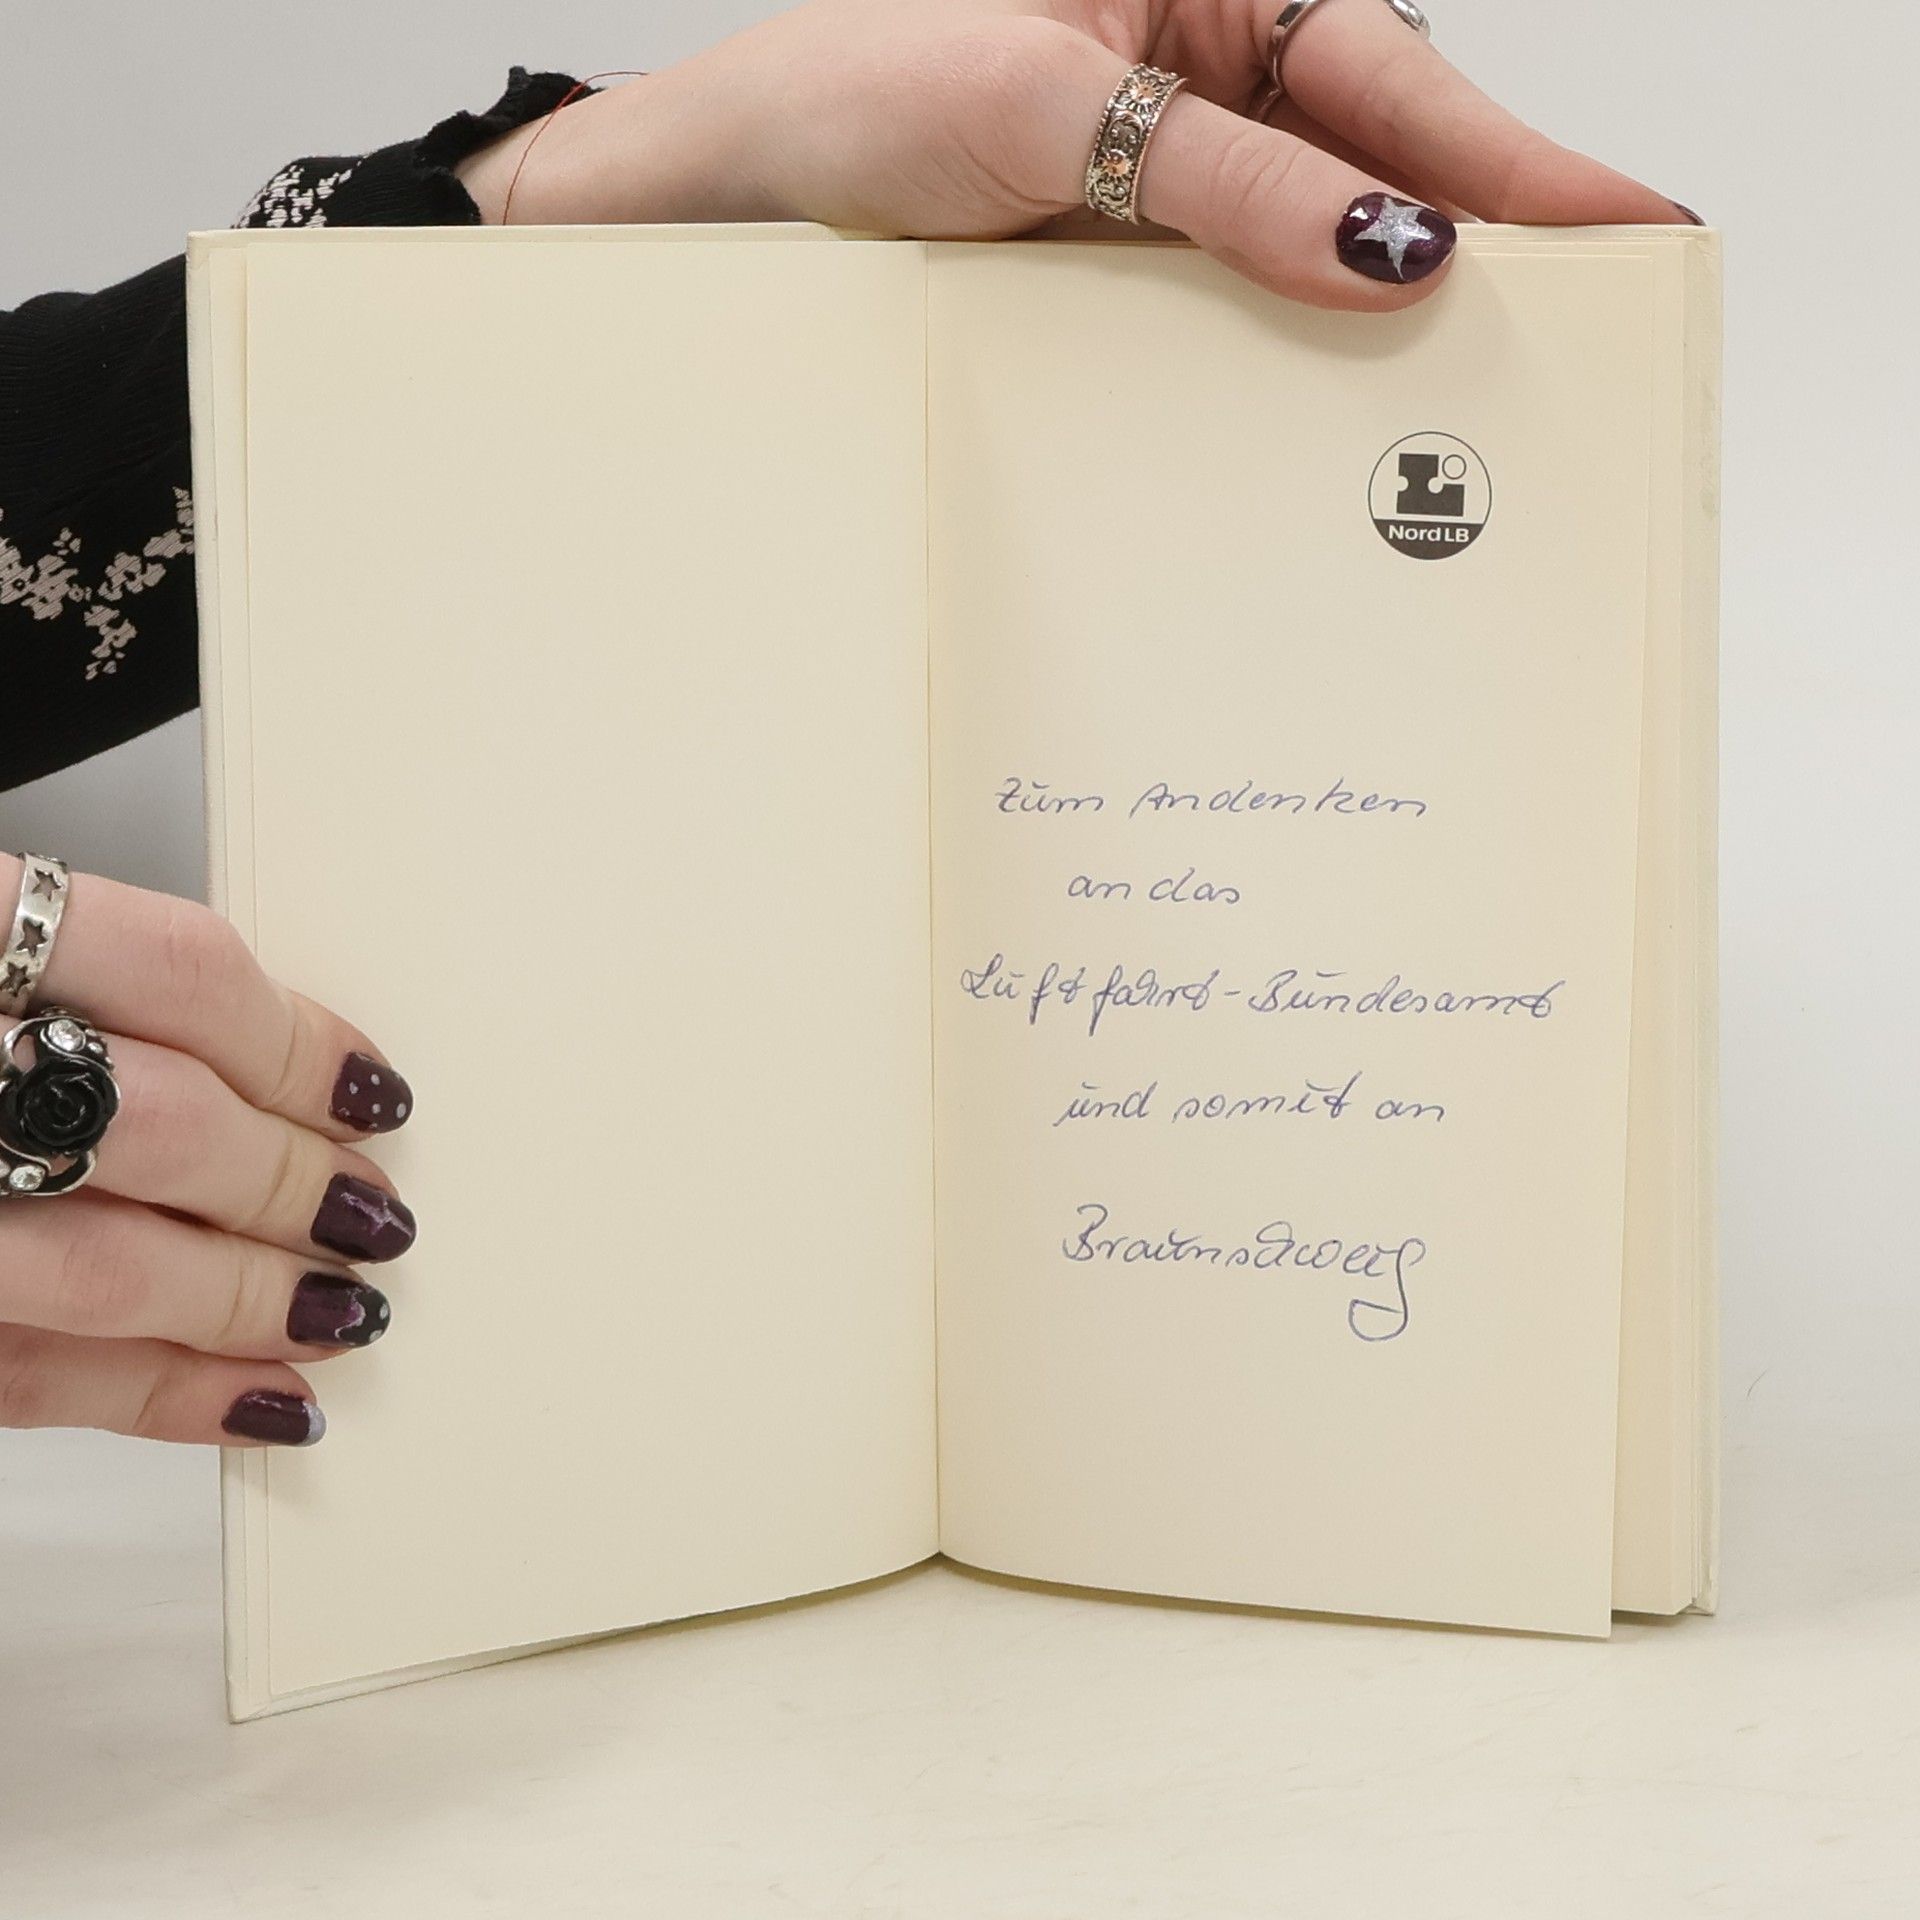 Nord LB
Zum Andenken
an das
Luftfahrt-Bundesamt
und somit an
Braunschweig